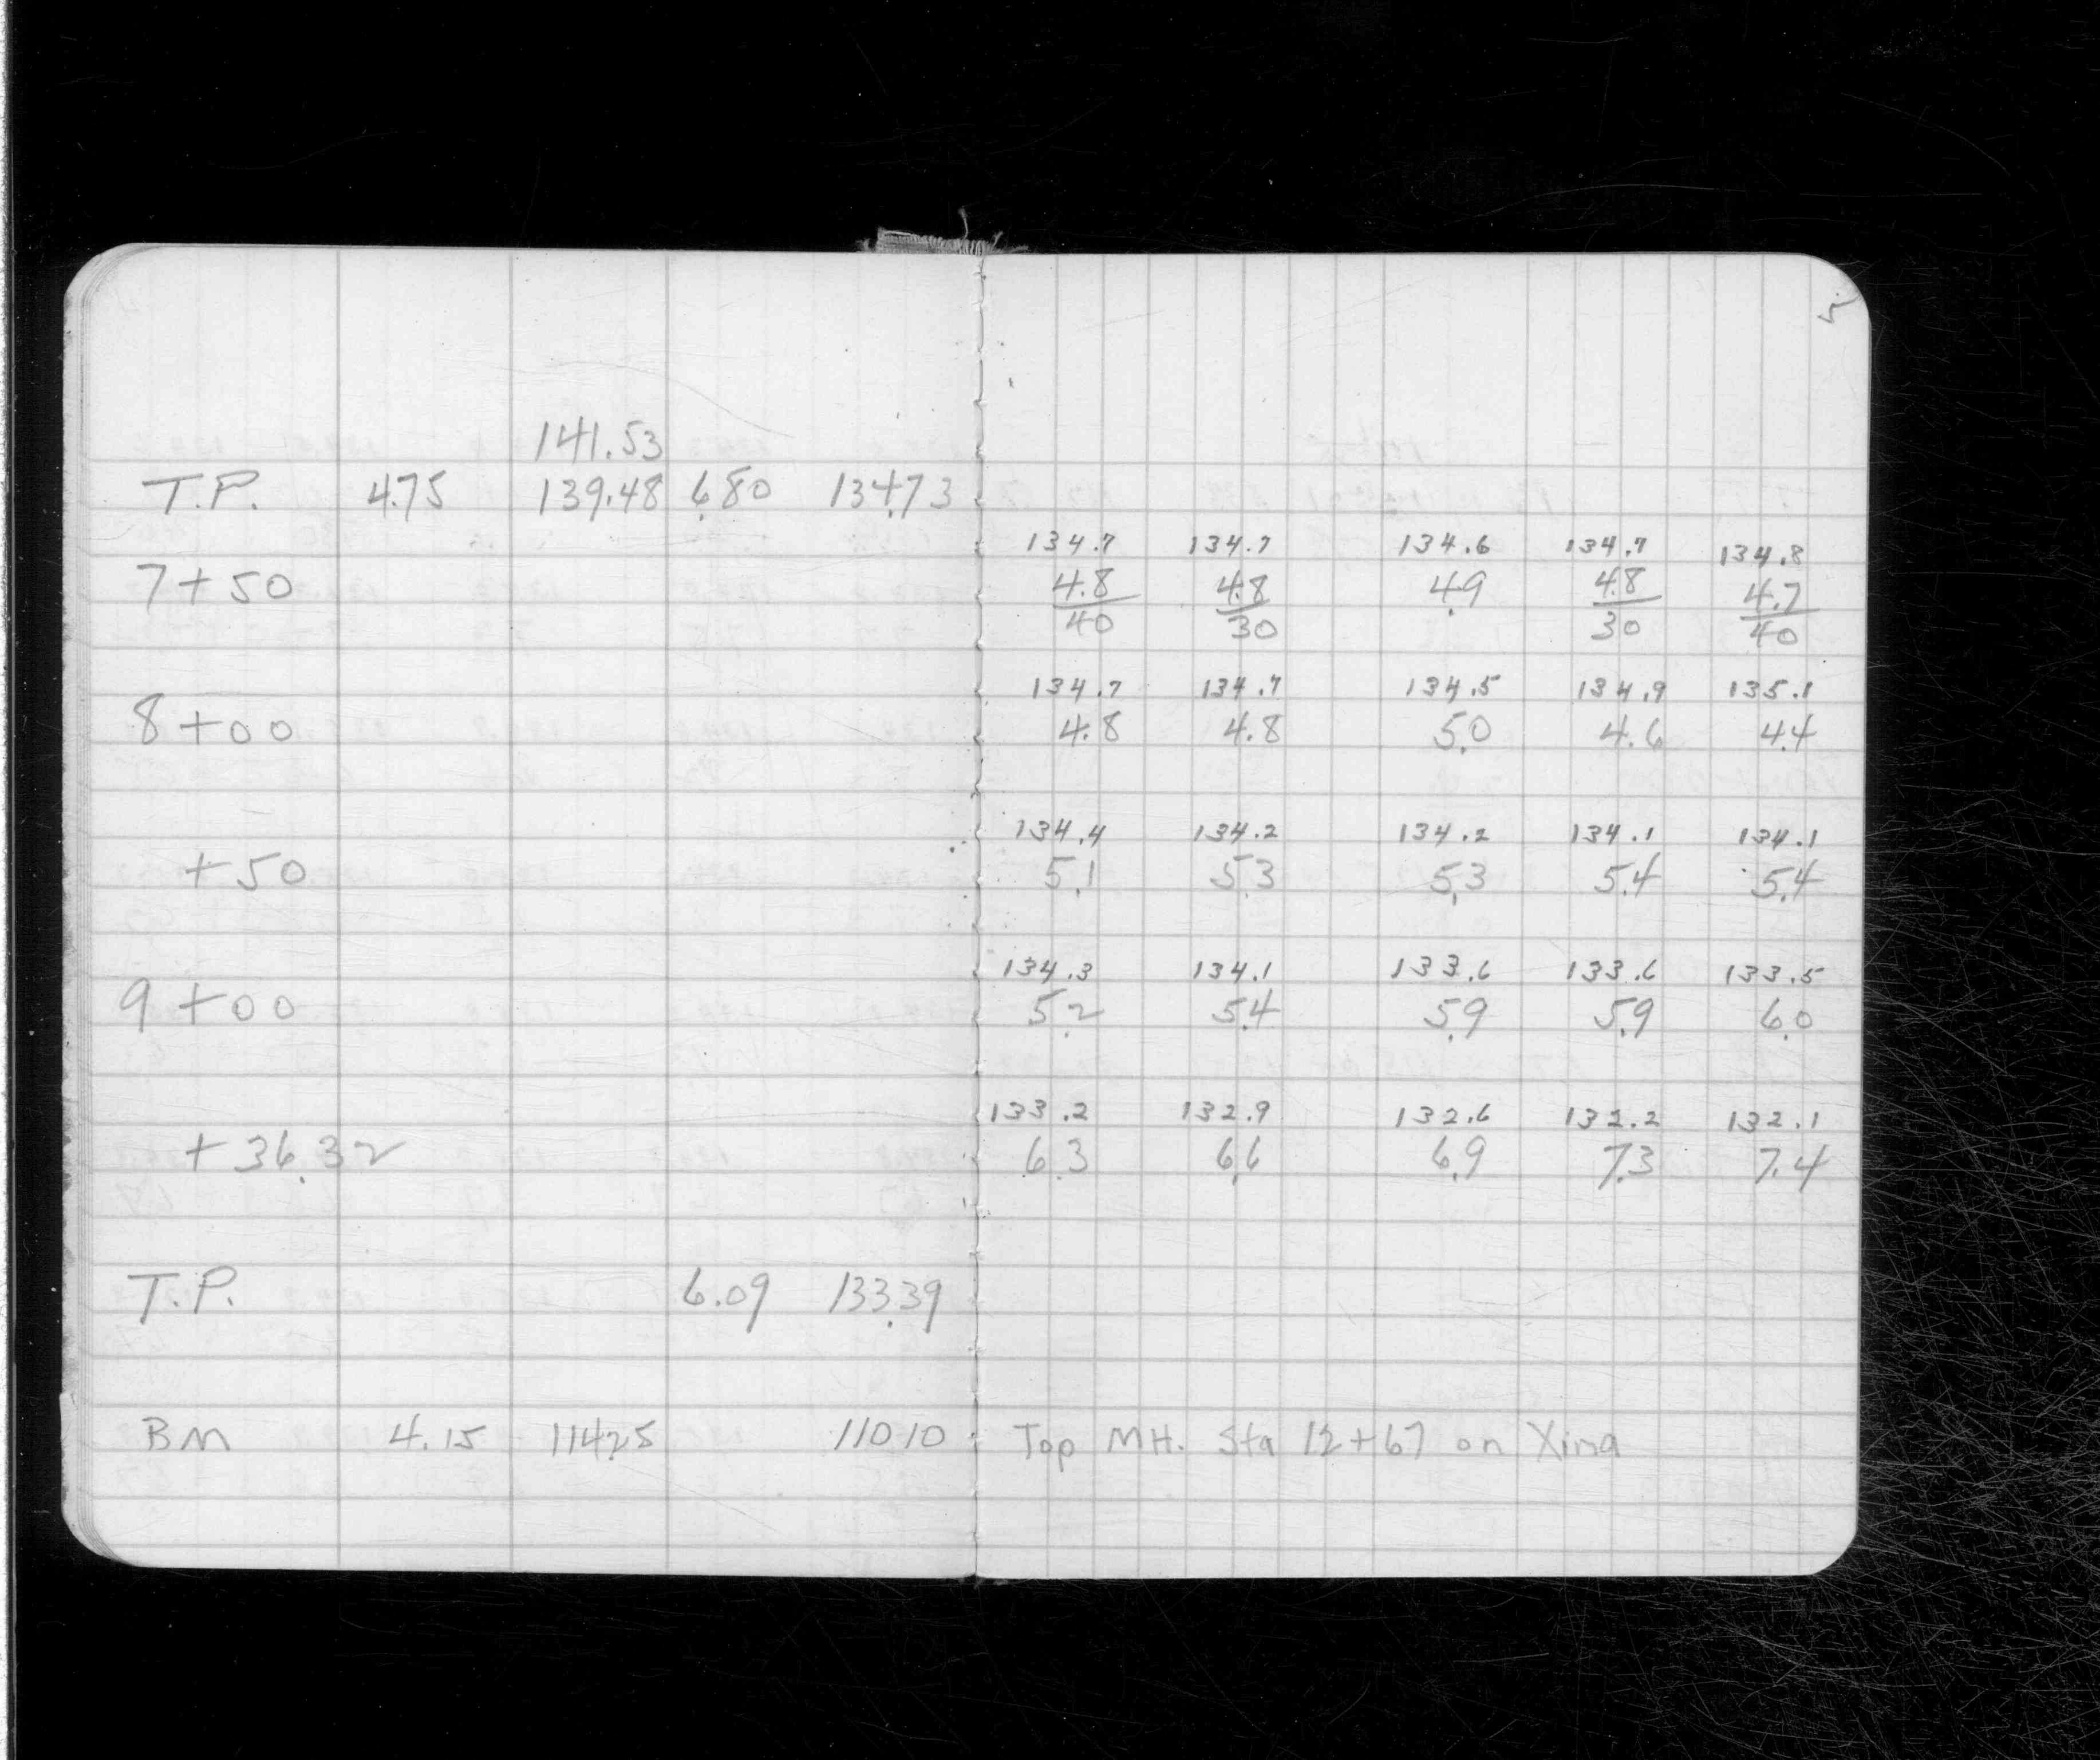 5
141.53
T.P. 4.75 139.48 6.80 134.73
134.7 134.7 134.6 134.7 134.8
7+50 4.8/40 4.8/30 4.9 4.8/30 4.7/40
134.7 134.7 134.5 134.9 135.1
8+00 4.8 4.8 5.0 4.6 4.4
134.4 134.2 134.2 134.1 134.1
+50 5.1 5.3 5.3 5.4 5.4
134.3 134.1 133.6 133.6 133.5
9+00 5.2 5.4 5.9 5.9 6.0
133.2 132.9 132.6 132.2 132.1
+36.32 6.3 6.6 6.9 7.3 7.4
T.P. 6.09 133.39
BM 4.15 114.25 110.10 Top MH. Sta 12+67 on Xing